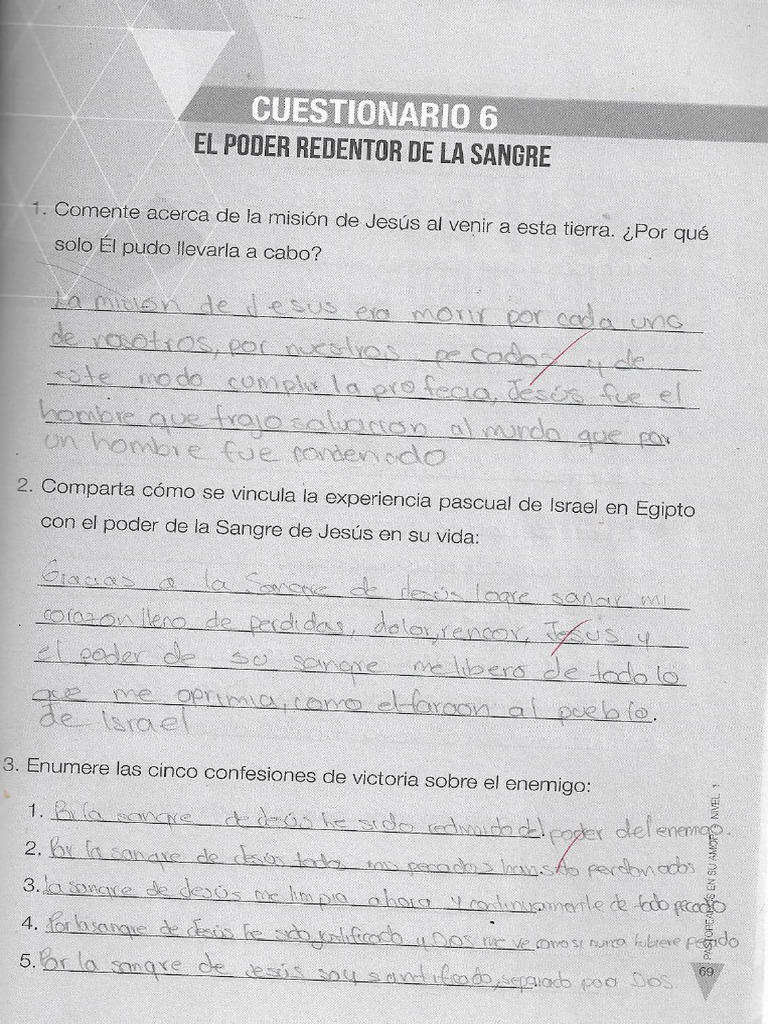 CUESTIONARIO 6
EL PODER REDENTOR DE LA SANGRE
1. Comente acerca de la misión de Jesús al venir a esta tierra. ¿Por qué
solo Él pudo llevarla a cabo?
La mición de Jesus era morir por cada uno
de nosotros, por nuestros pecados y de
este modo cumplir la profecia, Jesús fue el
hombre que trajo salvacion al mundo que por
un hombre fue condenado
2. Comparta cómo se vincula la experiencia pascual de Israel en Egipto
con el poder de la Sangre de Jesús en su vida:
Gracias a la Sangre de Jesús logre sanar mi
corazón lleno de perdidas, dolor, rencor, Jesús y
el poder de su sangre me libero de todo lo
que me oprimia, como el faraon al pueblo.
de Israel
3. Enumere las cinco confesiones de victoria sobre el enemigo:
1. Por la sangre de Jesús he sido redimido del poder del enemigo.
2. Por la sangre de Jesús todos mis pecados han sido perdonados
3. La sangre de Jesús me limpia ahora y continuamente de todo pecado
4. Por la sangre de Jesús he sido justificado y Dios me ve como si nunca hubiere pecado
5. Por la sangre de Jesús soy santificado, separado para Dios.
PASTOREADOS EN SU AMOR NIVEL 1
69